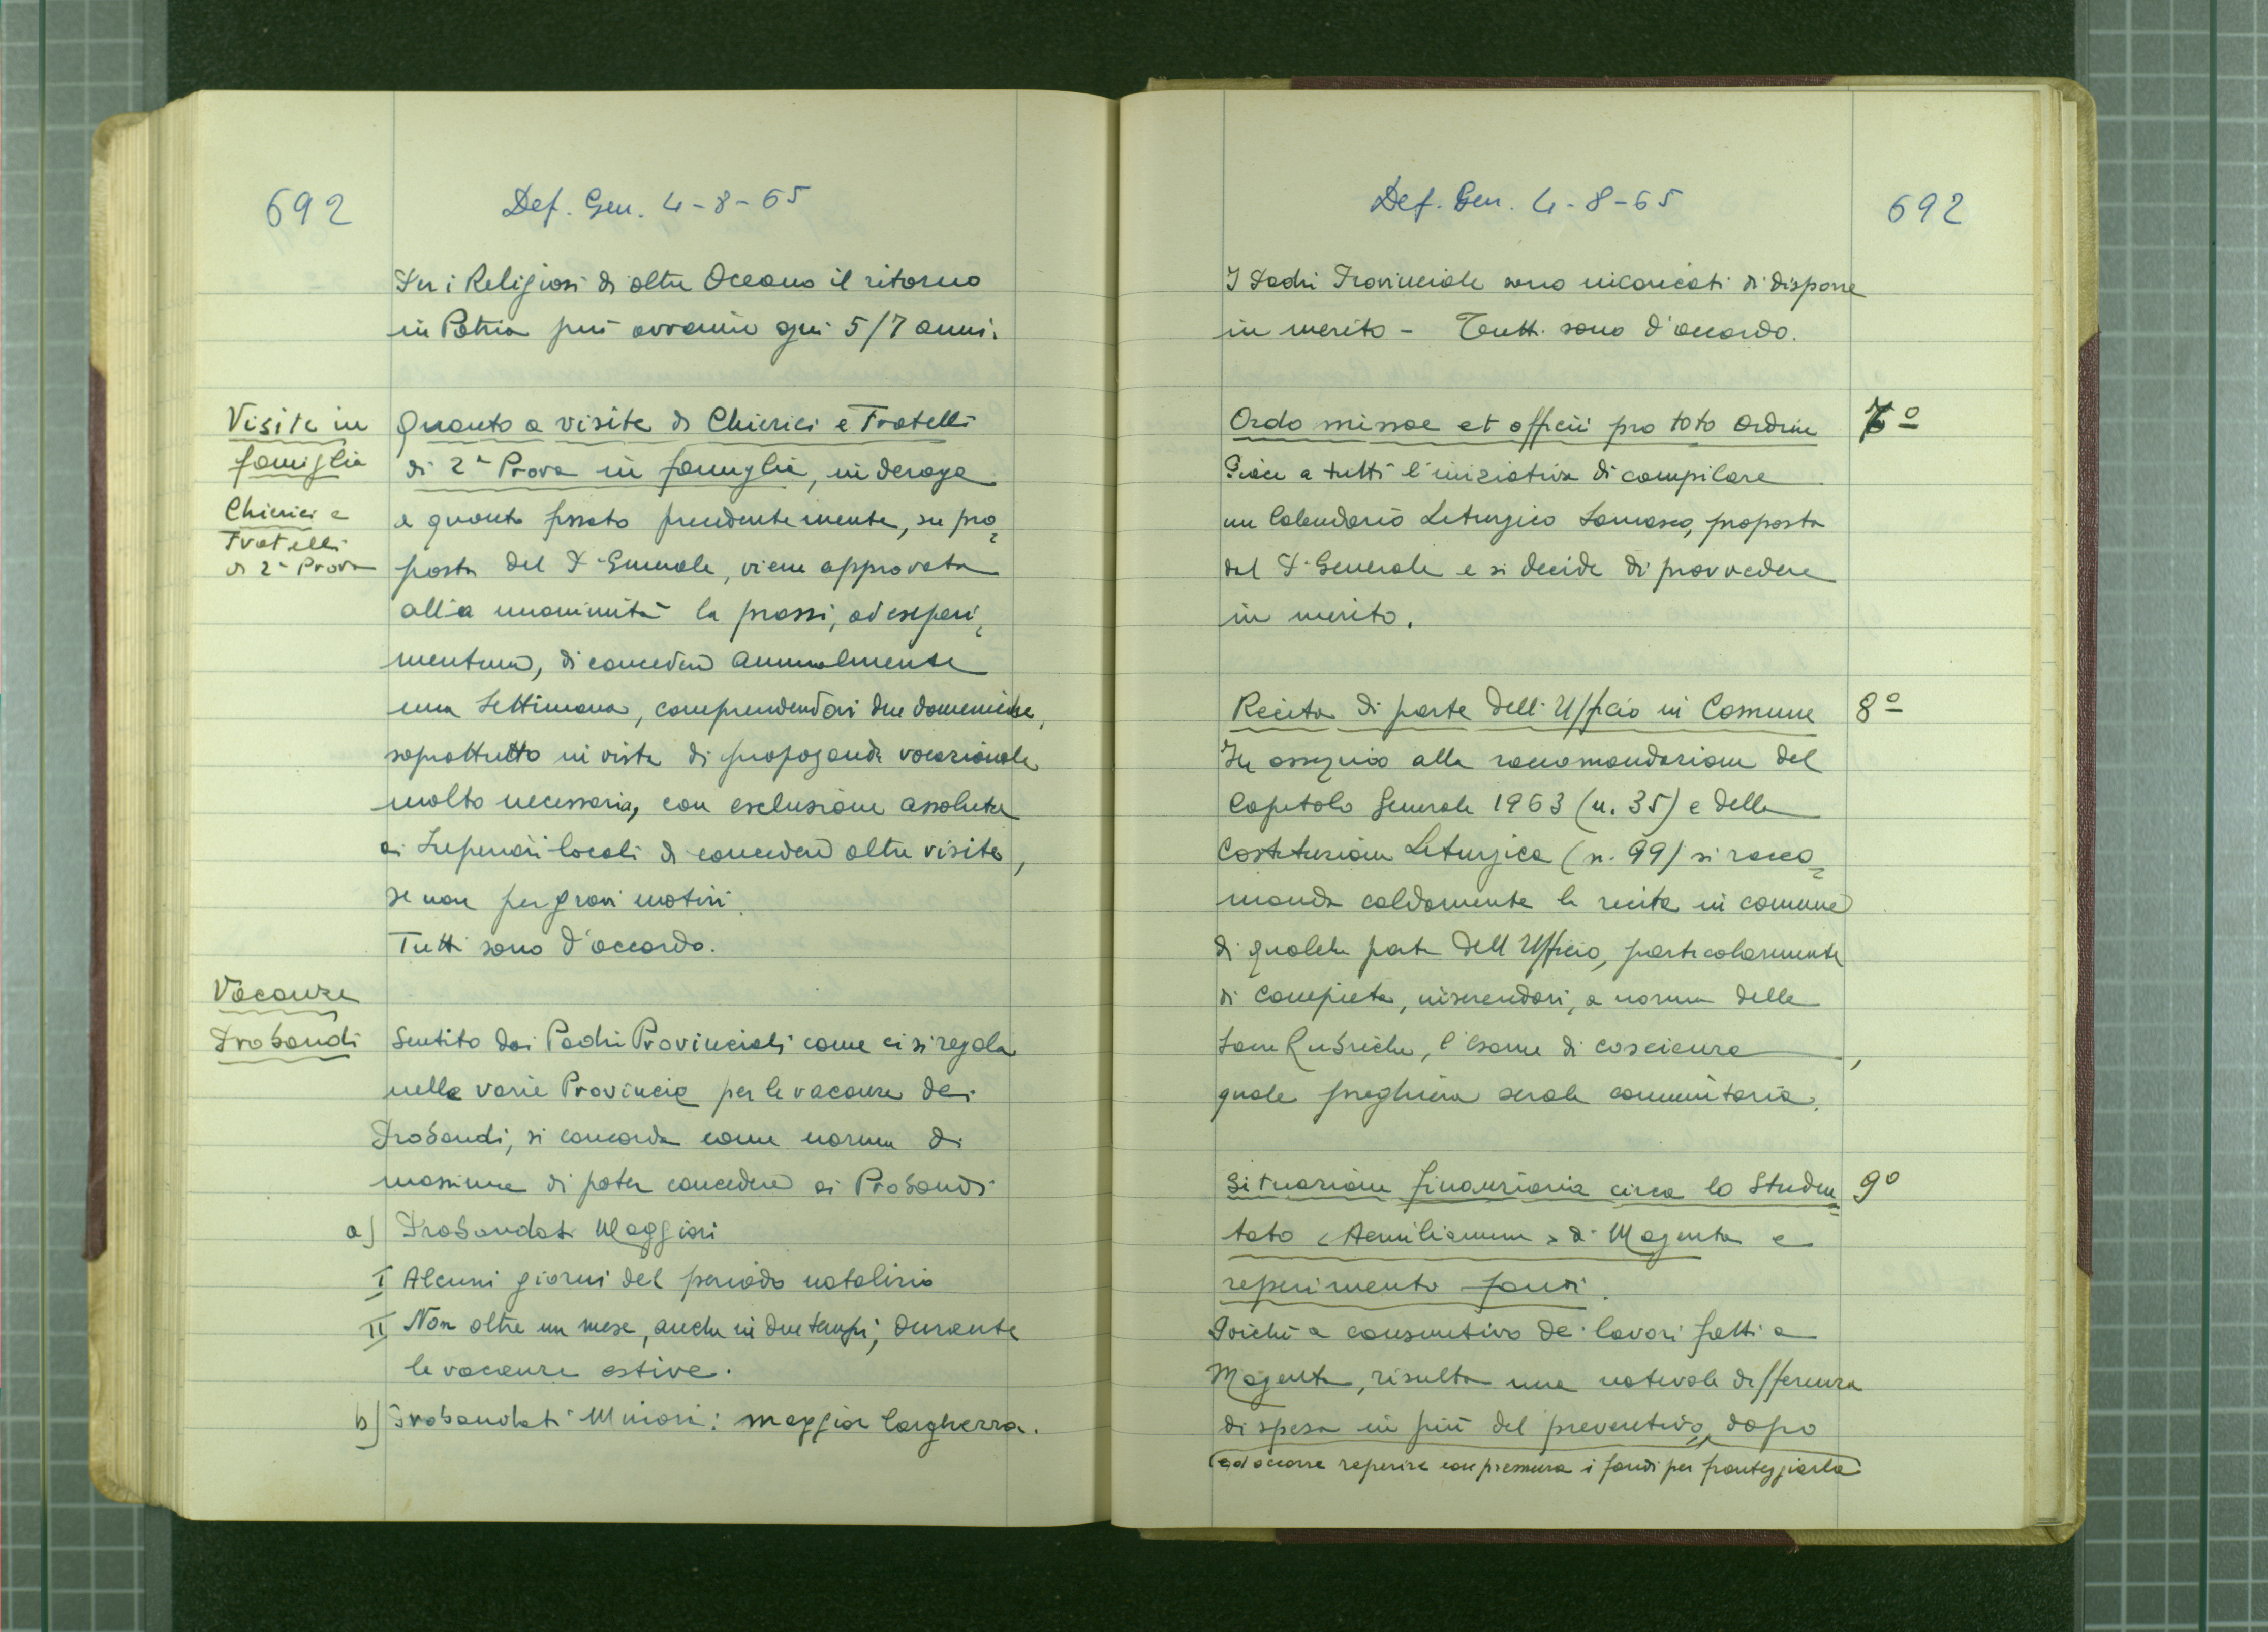 692
Def. Gen. 4-8-65
Per i Religiosi di oltre Oceano il ritorno
in Patria può avvenire ogni 5/7 anni.
Visite in
famiglia
Chierici e
Fratelli
di 2ª Prova
Quanto a visite di Chierici e Fratelli
di 2ª Prova in famiglia, in deroga
a quanto fissato precedentemente, su pro=
posta del P. Generale, viene approvata
all'a unanimità la prassi, ad esperi=
mentum, di concedere annualmente
una Settimana, comprendendovi due domeniche,
soprattutto in vista di propaganda vocazionale
molto necessaria, con esclusione assoluta
ai Superiori locali di concedere altre visite,
se non per gravi motivi.
Tutti sono d'accordo.
Vacanze
Probandi
Sentito dai Padri Provinciali come ci si regola
nelle varie Provincie per le vacanze dei
Probandi, si concorda come norma di
massima di poter concedere ai Probandi
a) Probandati Maggiori
I Alcuni giorni del periodo natalizio
II Non oltre un mese, anche in due tempi, durante
le vacanze estive.
b) Probandati Minori: maggior larghezza.
Def. Gen. 4-8-65
692
I Padri Provinciali sono incaricati di disporre
in merito - Tutti sono d'accordo.
Ordo missae et officii pro toto Ordine 7º
Piace a tutti l'iniziativa di compilare
un Calendario Liturgico Somasco, proposta
dal P. Generale e si decide di provvedere
in merito.
Recita di parte dell'Ufficio in Comune 8º
In ossequio alla raccomandazione del
Capitolo Generale 1963 (n. 35) e della
Costituzione Liturgica (n. 99) si racco=
manda caldamente la recita in comune
di qualche parte dell'Ufficio, particolarmente
di Compieta, inserendovi, a norma delle
Sacre Rubriche, l'esame di coscienza,
quale preghiera serale comunitaria.
Situazione finanziaria circa lo Studen= 9º
tato <Aemilianum> di Magenta e
reperimento fondi.
Poiché a consuntivo dei lavori fatti a
Magenta, risulta una notevole differenza
di spesa in più del preventivo, dopo
(ed occorre reperire con premura i fondi per fronteggiarla